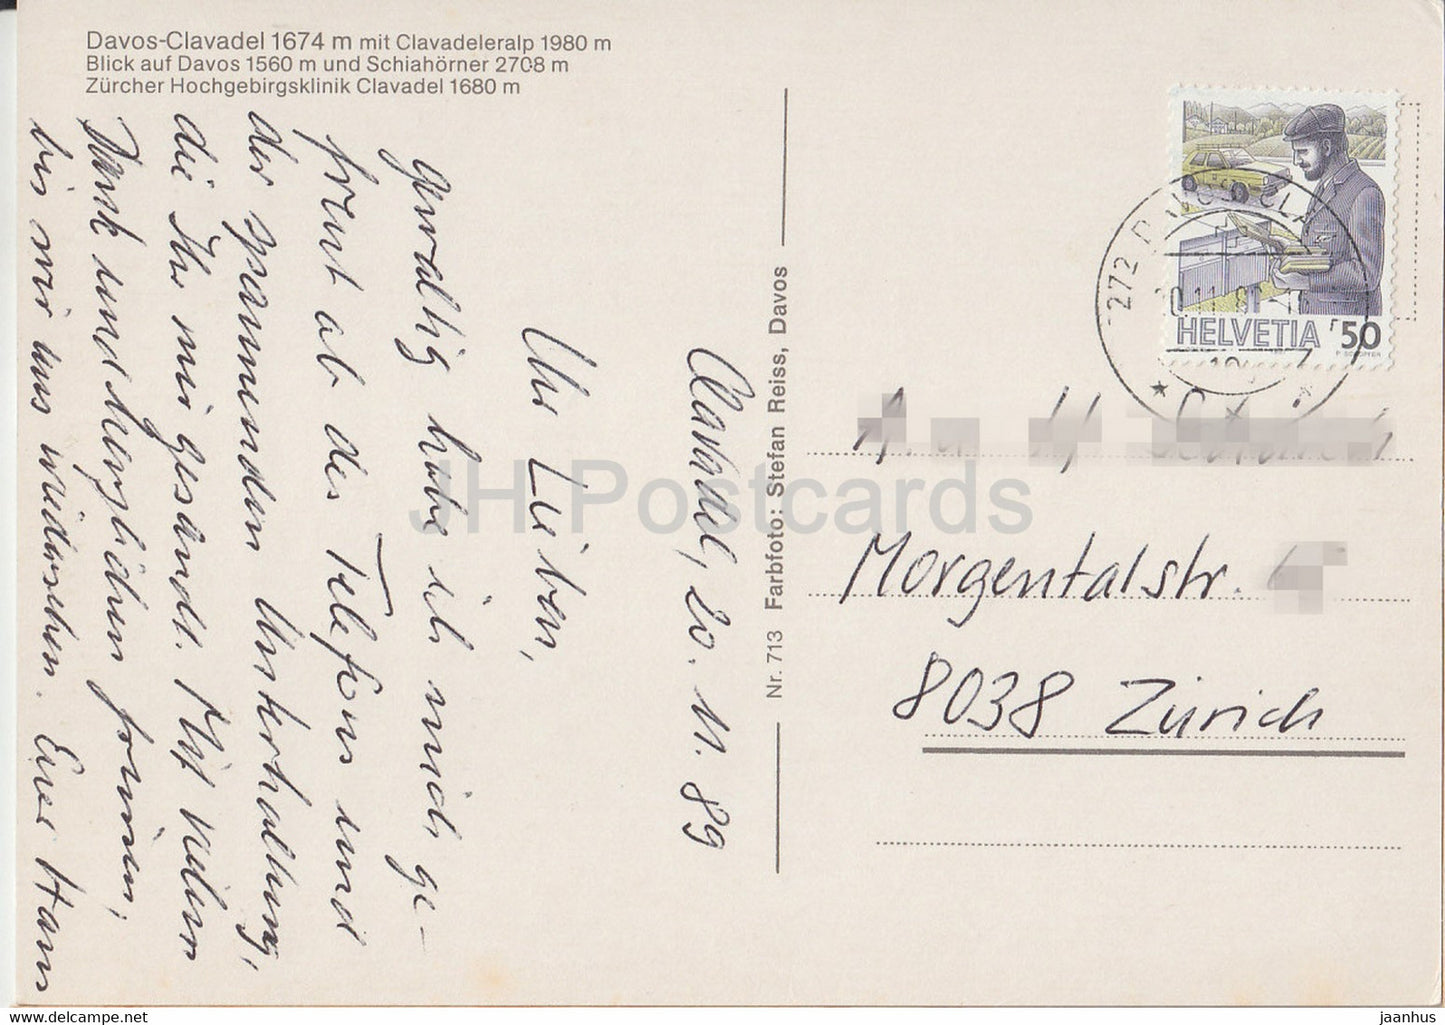 Davos-Clavadel 1674 m mit Clavadeleralp 1980 m
Blick auf Davos 1560 m und Schiahörner 2708 m
Zürcher Hochgebirgsklinik Clavadel 1680 m
Clavadel, 20. 11. 89
Ihr Lieben,
gewaltig habe ich mich ge-
freut ab des Telefons und
der spannenden Unterhaltung,
die Ihr mir gesandt. Mit vielem
Dank und herzlichem
bis wir uns wiedersehen. Euer Hans
Nr. 713 Farbfoto: Stefan Reiss, Davos
HELVETIA 50
Morgentalstr.
8038 Zürich
JH Postcards
jaanhus © ecrater.com